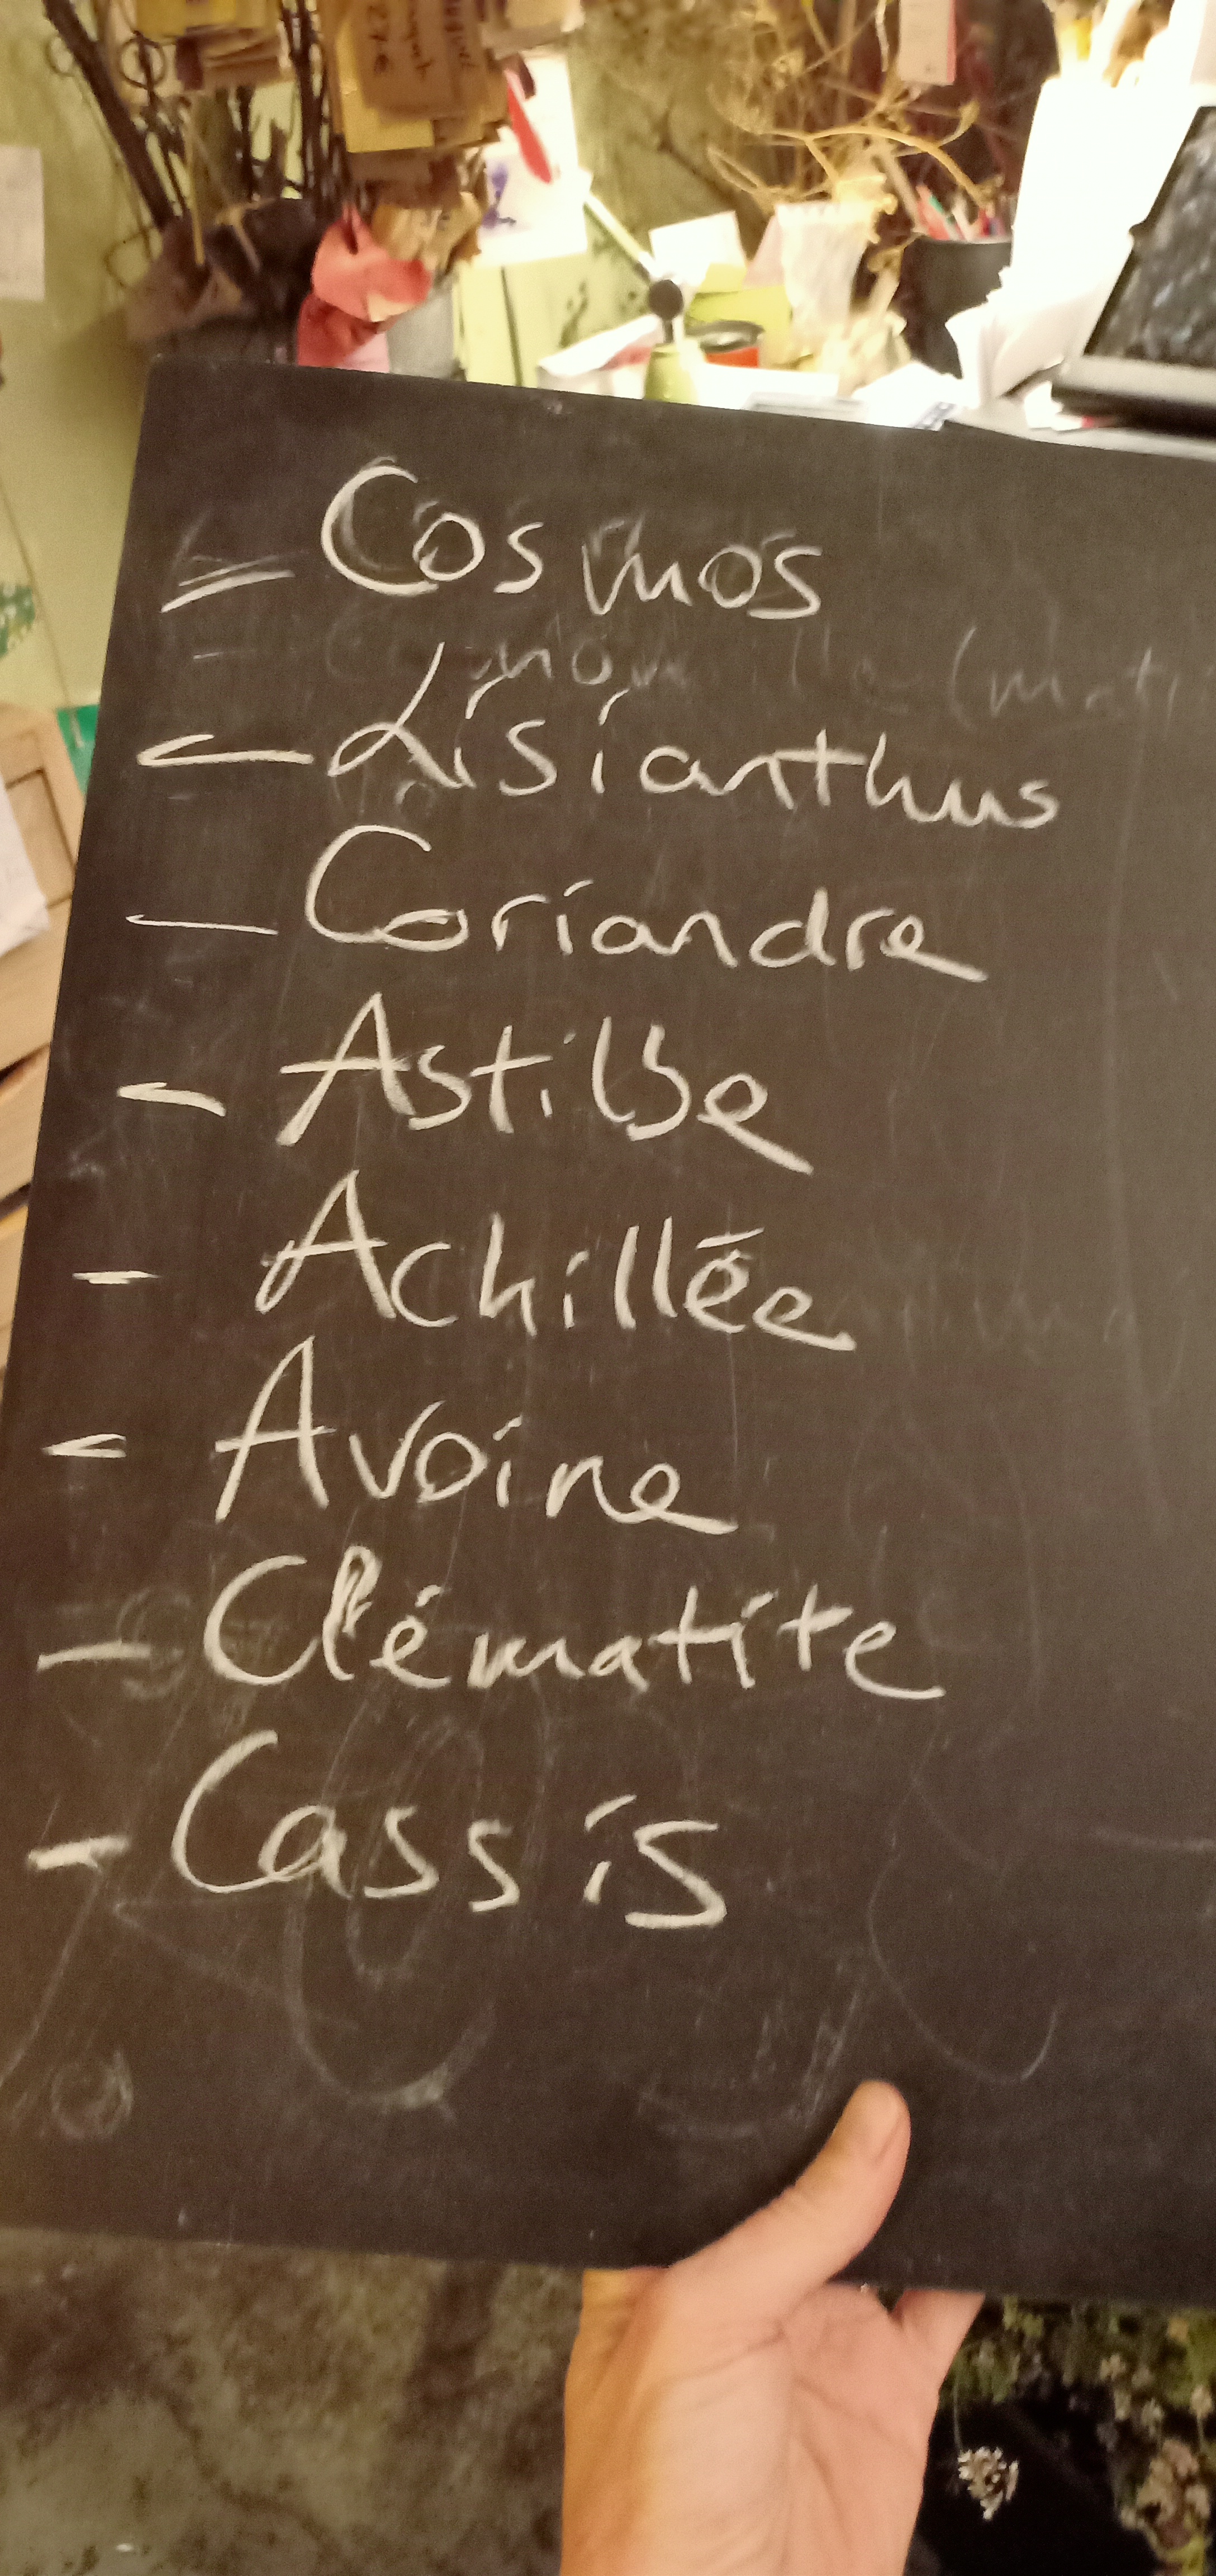 - Cosmos
- Lisianthus
- Coriandre
- Astilbe
- Achillée
- Avoine
- Clématite
- Cassis